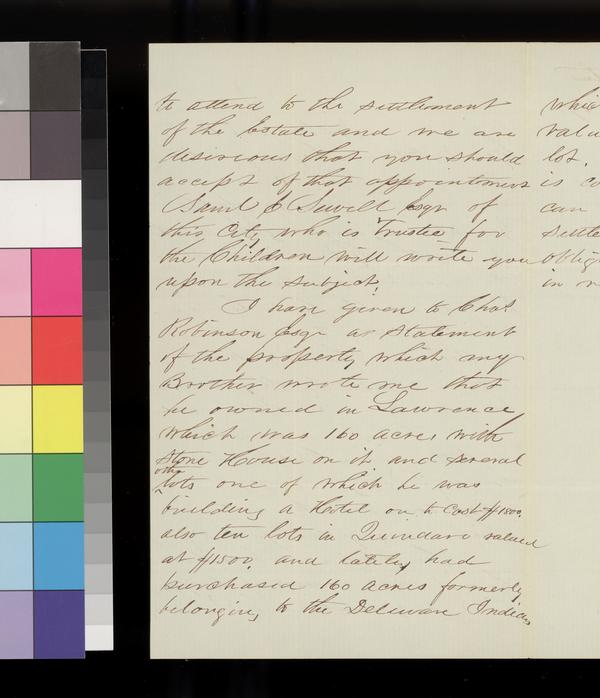 to attend to the settlement
of the Estate and we are
desirious that you should
accept of that appointment
Saml E Sewell Esqr of
this City, who is Trustee for
the Children will write you
upon the subject.
I have given to Chas.
Robinson Esqr a statement
of the property, which my
Brother wrote me that
he owned in Lawrence
which was 160 acres with
Stone House on it and several
other
lots one of which he was
building a Hotel on to cost $1500.
also ten lots in Quindaro valued
at $1500. and lately had
purchased 160 acres formerly
belonging to the Deleware Indians
which
valu
lot.
is co
can
settle
oblig
in r